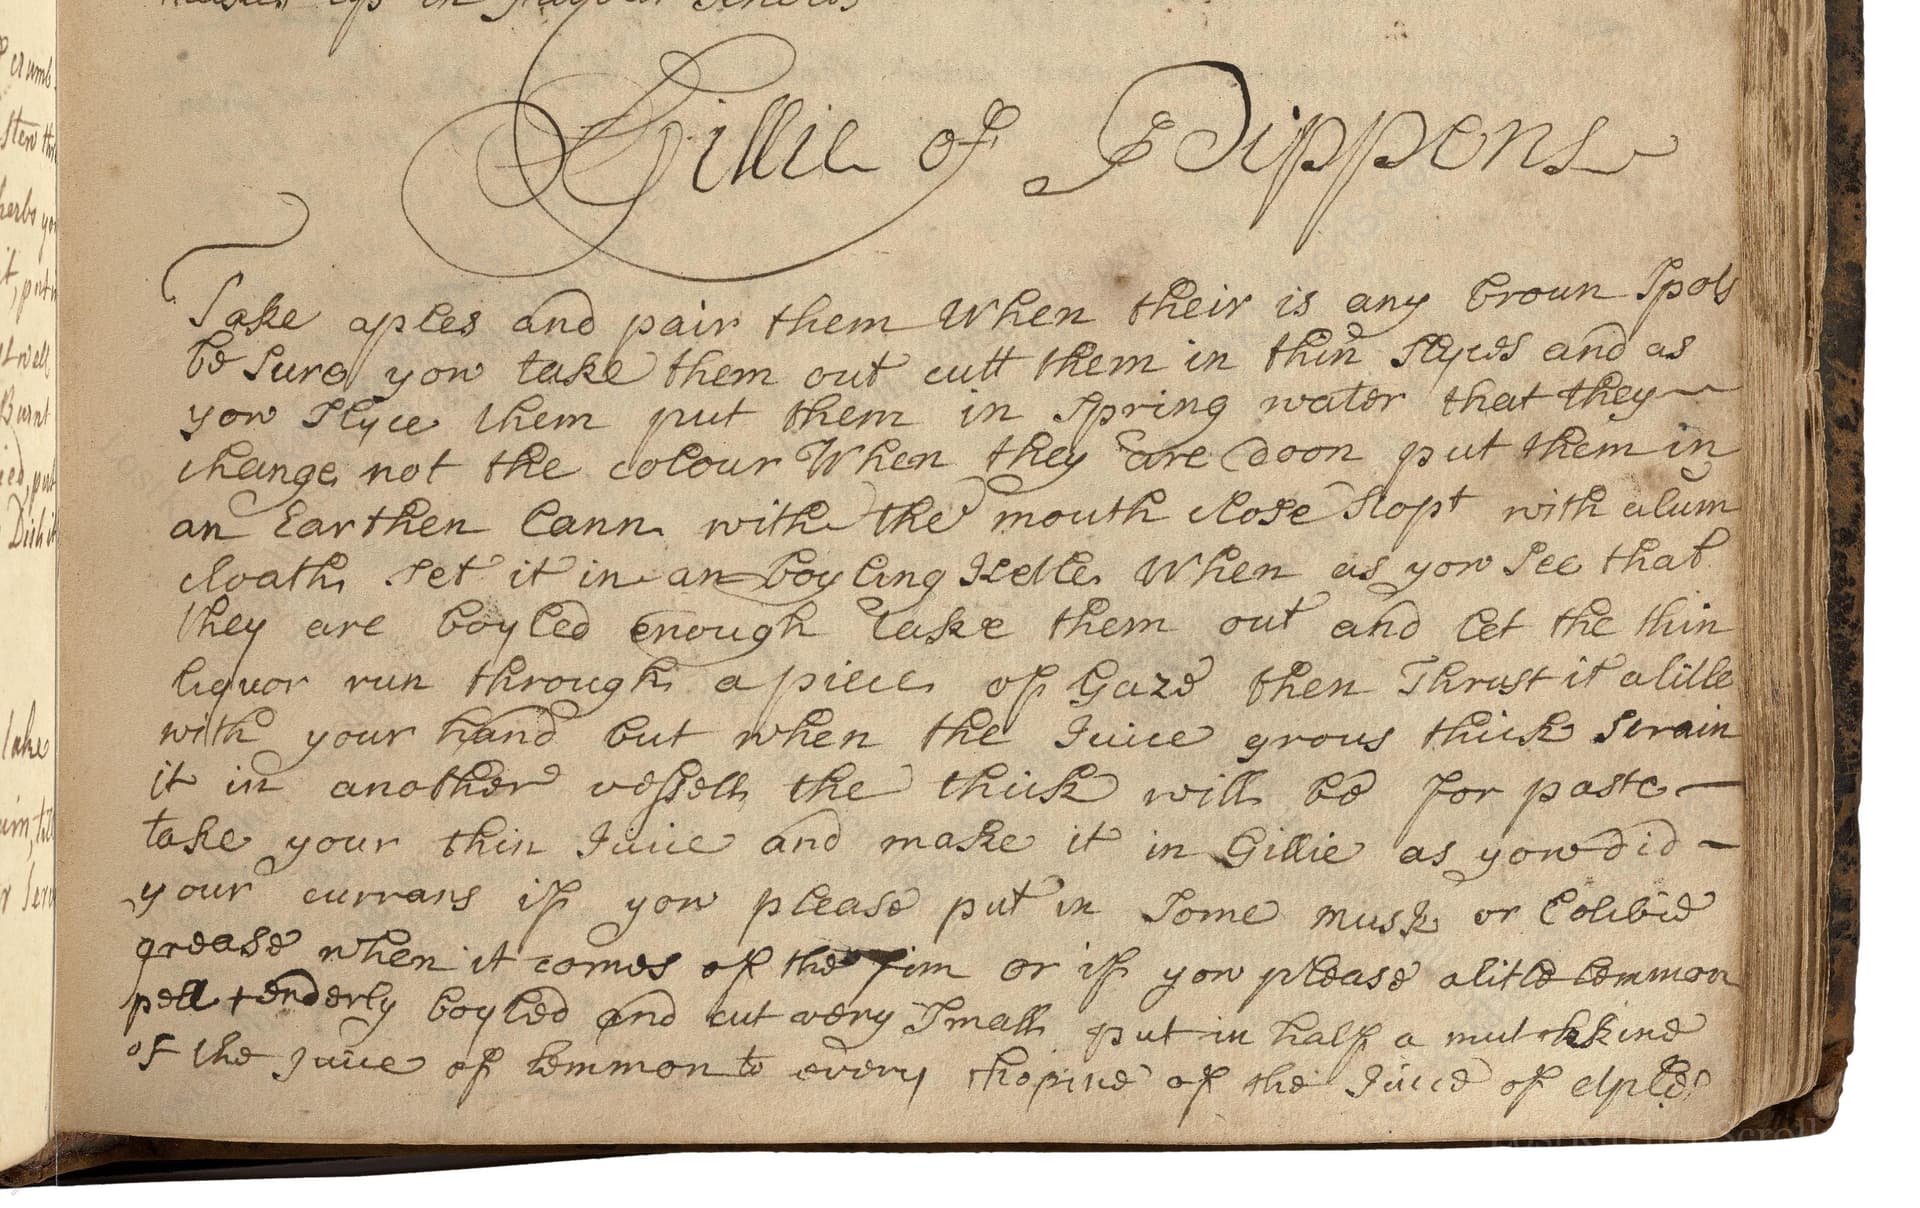 Gillie of Pippens
Take aples and pair them When their is any broun Spots
be Sure yow take them out cutt them in thin Slyces and as
yow Slyce them put them in Spring water that they
change not the colour When they are doon put them in
an Earthen Cann with the mouth close Stopt with a lum
cloath Set it in an boyling Ketle When as yow See that
they are boyled enough take them out and let the thin
liquor run through a piece of Gaze then Thrust it a litle
with your hand but when the Juice grous thick Strain
it in another vessell the thick will be for paste
take your thin Juice and make it in Gillie as yow did
your currans if yow please put in Some musk or
grease when it comes of the fire or if yow please a litle lemmon
pell tenderly boyled and cut very Small put in half a mutchkine
of the Juice of lemmon to every chopine of the Juice of Aples
crumb
herbs yo
Burnt
Dish it
take